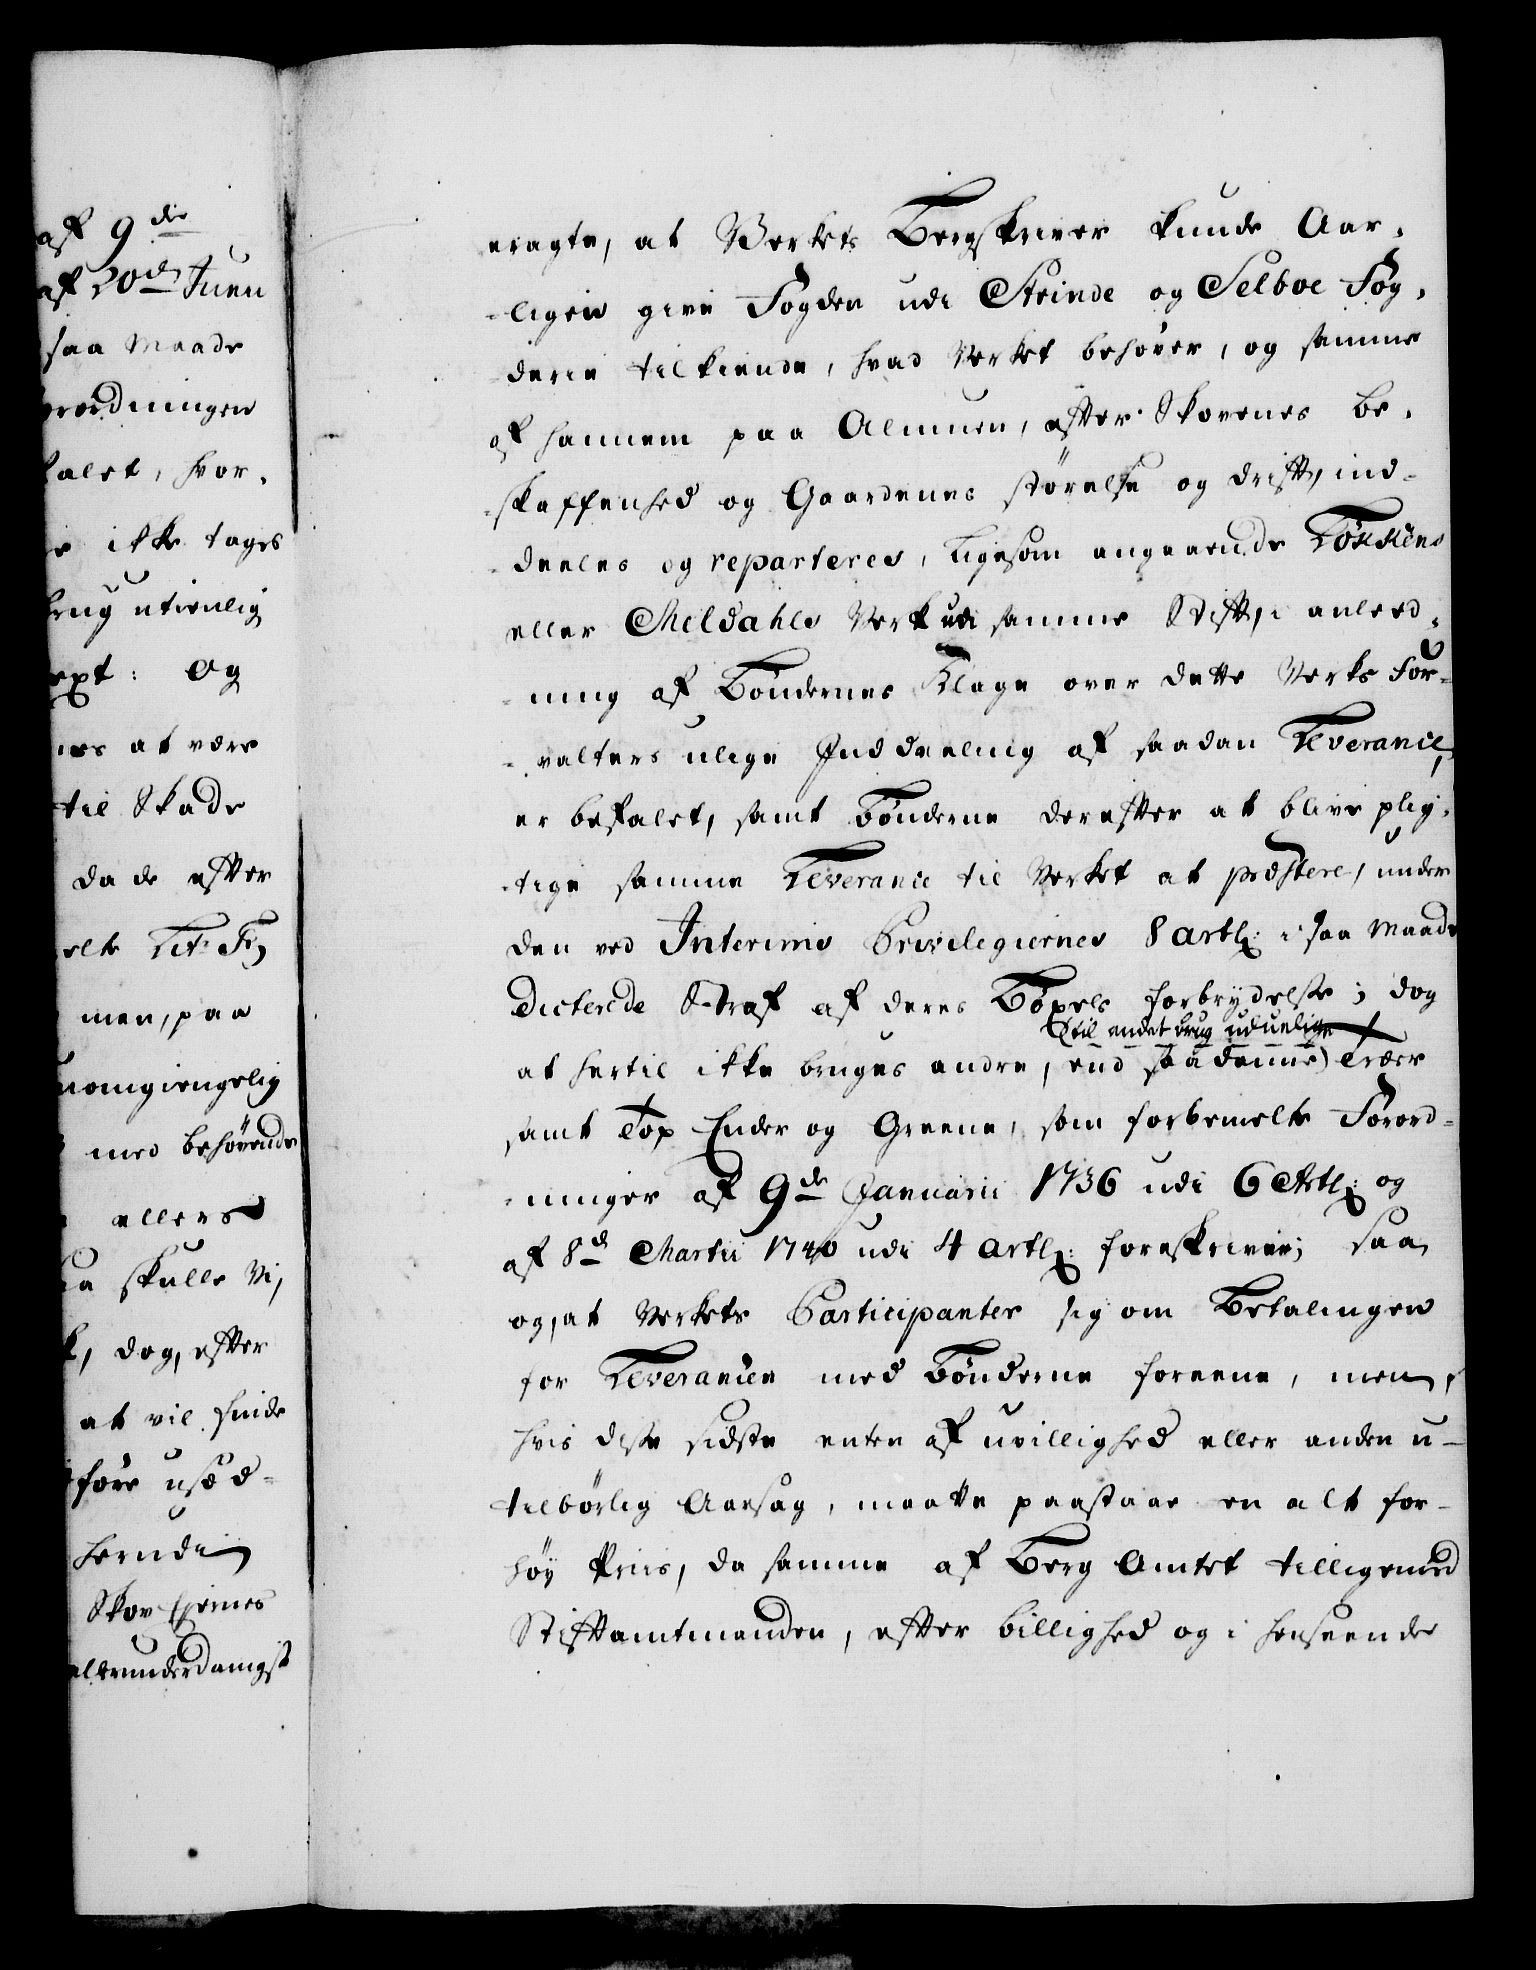 af 9de
af 20d Juni
saa Maade
rordningen
alet, hvor-
ikke tages
brug utienlig
ext: Og
nes at være
til Skade
da de efter
elte Litr F,
men, paa
uomgiengelig
med behövende
ellers
skulle Vi,
dog, efter
at vil finde
före usæd-
herudi
Skov Eyernes
allerunderdanigst
eragte, at Verkets Bergskriver kunde Aar-
ligen give Fogden udi Strinde og Selboe Fog-
derie tilkiende, hvad Verket behöver, og samme
af hannem paa Almuen, efter Skovenes be-
skaffenhed og Gaardenes störelse og drift, ind-
deeles og reparteres, ligesom angaaende Løkkens
eller Meldahls Verk udi samme Stift, i anleed-
ning af Böndernes Klage over dette Verks For-
valters ulige Inddeeling af saadan Leverance,
er befalet, samt Bönderne derefter at blive plig-
tige samme Leverance til Verket at præstere, under
den ved Interims Privilegiernes 8 artl: i saa Maade
dicterede Straf af deres Böxels forbrydelse; dog
(til andet brug uduelige
at hertil ikke bruges andre, end saadanne) Træer
samt Top Ender og Greene, som forbemelte Forord-
ninger af 9de Januarii 1736 udi 6 Artl: og
af 8d Martii 1740 udi 4 artl: foreskriver; saa
og, at Verkets Participanter sig om Betalingen
for Leverancen med Bönderne foreene, men,
hvis disse sidste enten af uvillighed eller anden u-
tilbörlig Aarsag, maatte paastaae en alt for-
höy Priis, da samme af Berg Amtet tilligemed
Stiftamtmanden, efter billighed og i henseende